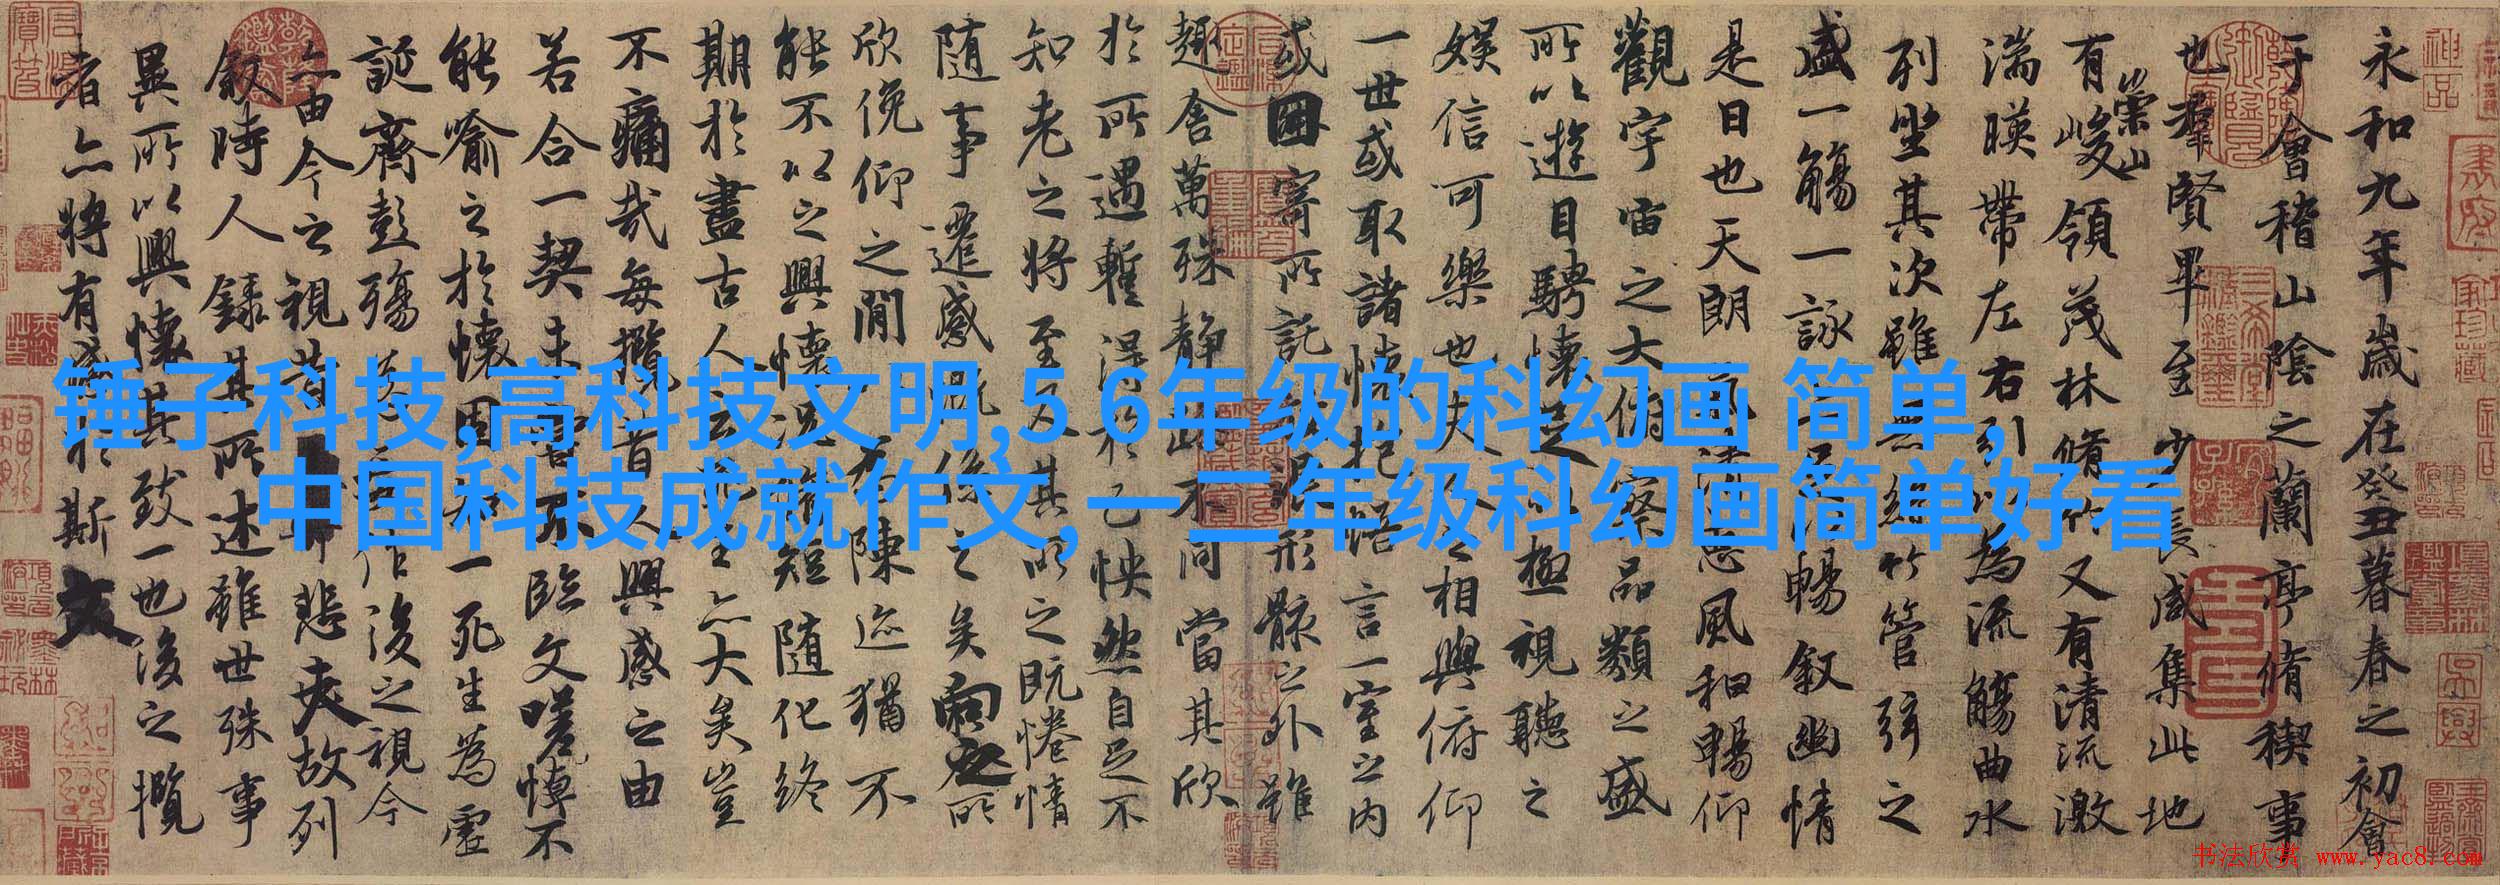 锤子科技,高科技文明,5 6年级的科幻画 简单,
中国科技成就作文,一二年级科幻画简单好看
永和九年歲在癸丑暮春之初會
于會稽山陰之蘭亭脩稧事
也羣賢畢至少長咸集此地
有崇山峻領茂林脩竹又有清流激
湍暎帶左右引以為流觴曲水
列坐其次雖無絲竹管弦之
盛一觴一詠足以暢叙幽情
是日也天朗氣清惠風和暢仰
觀宇宙之大俯察品類之盛
所以遊目騁懷足以極視聽之
娛信可樂也夫人之相與俯仰
一世或取諸懷抱悟言一室之內
或因寄所託浪形骸之外雖
趣舍萬殊静不同當其欣
於所遇蹔得於己怏然自足不
知老之將至及其所之既惓情
隨事遷感慨係之矣向之所
欣俛仰之閒以為陳迹猶不
能不以之興懷況脩短隨化終
期於盡古人云死生亦大矣豈
不痛哉每攬昔人興感之由
若合一契未嘗不臨文嗟悼不
能喻之於懷固知一死生為虛
誕齊彭殤為妄作後之視今
亦由今之視昔悲夫故列
叙時人錄其所述雖世殊事
異所以興懷其致一也後之攬
者亦將有感於斯文
书法欣赏 www.yac8.com